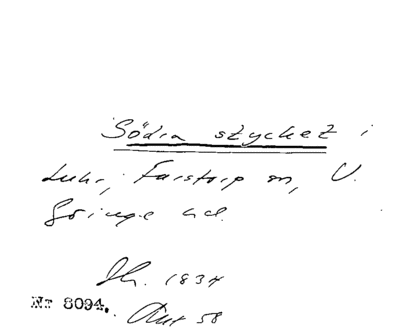 Södra stycket i
Luhr, Farstorp sn, V.
Göinge hd.
Sk. 1834
Nr 8094. Akt 58